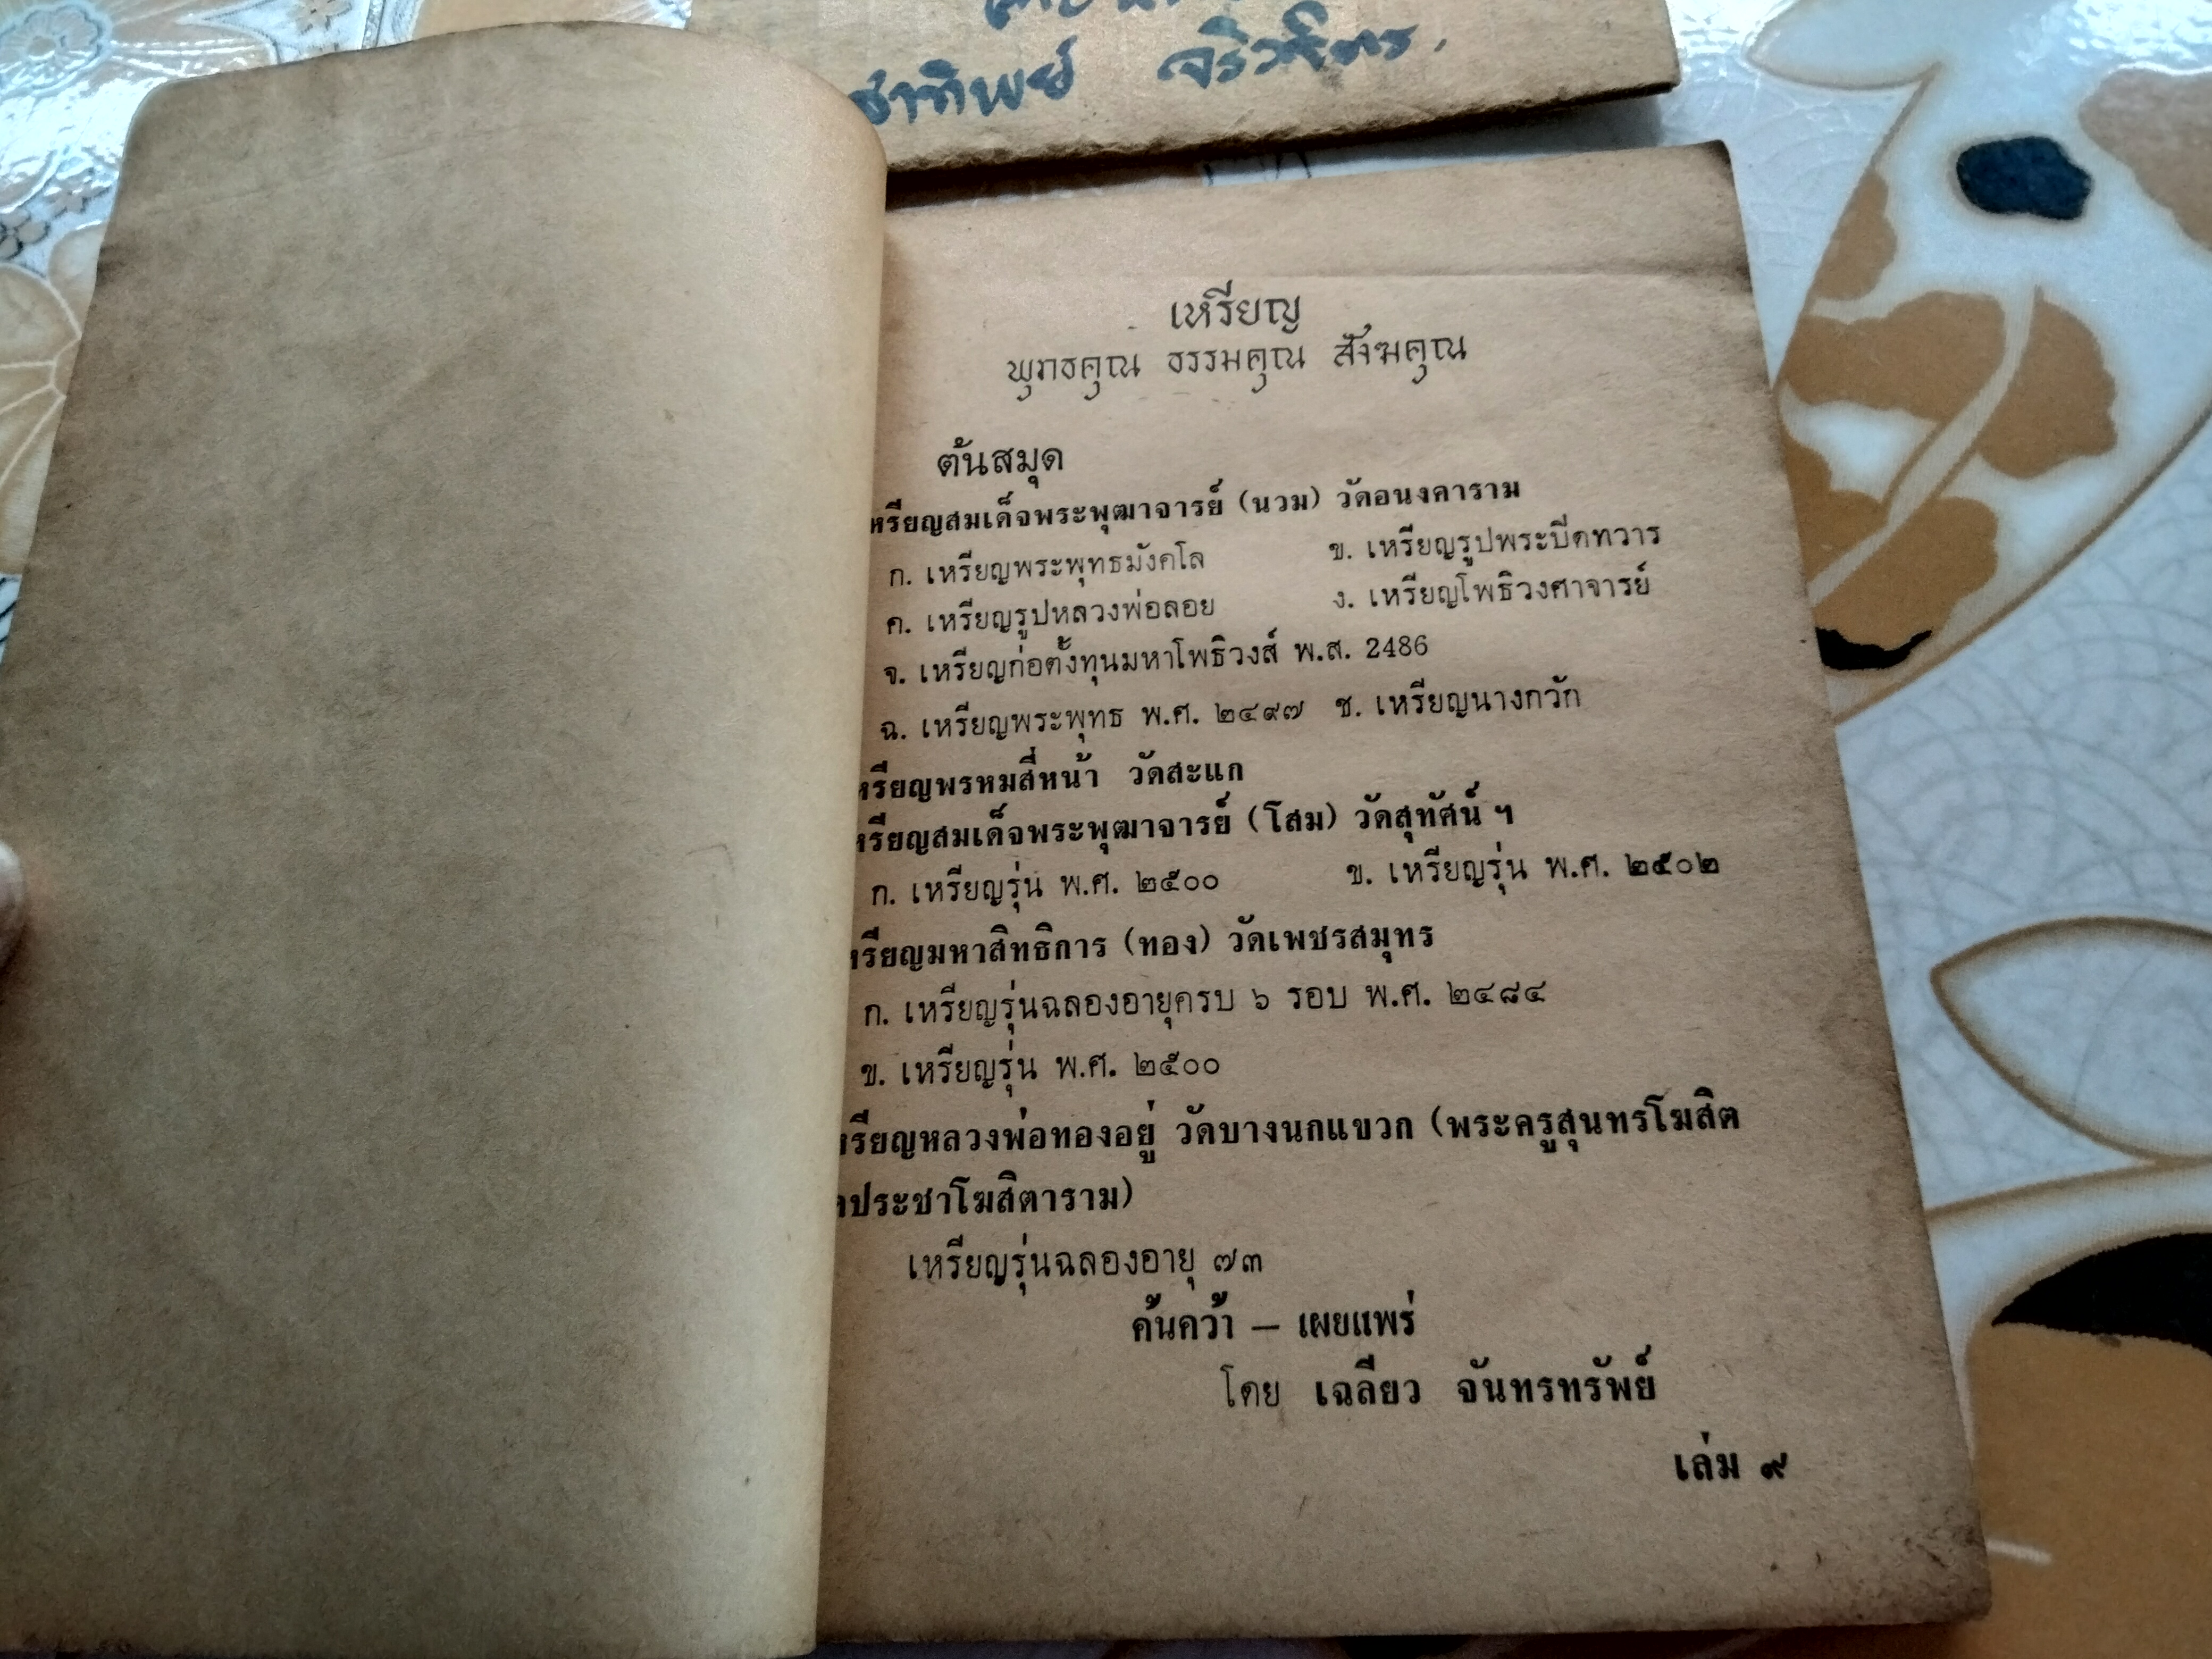 ชาทิพย์
เหรียญ
พุทธคุณ ธรรมคุณ สังฆคุณ
ต้นสมุด
หรียญสมเด็จพระพุฒาจารย์ (นวม) วัดอนงคาราม
ก. เหรียญพระพุทธมังคโล ข. เหรียญรูปพระปิดทวาร
ค. เหรียญรูปหลวงพ่อลอย ง. เหรียญโพธิวงศาจารย์
จ. เหรียญก่อตั้งทุนมหาโพธิวงส์ พ.ส. 2486
ฉ. เหรียญพระพุทธ พ.ศ. ๒๔๙๗ ช. เหรียญนางกวัก
หรียญพรหมสี่หน้า วัดสะแก
หรียญสมเด็จพระพุฒาจารย์ (โสม) วัดสุทัศน์ ฯ
ก. เหรียญรุ่น พ.ศ. ๒๕๐๐ ข. เหรียญรุ่น พ.ศ. ๒๕๐๒
รียญมหาสิทธิการ (ทอง) วัดเพชรสมุทร
ก. เหรียญรุ่นฉลองอายุครบ ๖ รอบ พ.ศ. ๒๔๘๔
ข. เหรียญรุ่น พ.ศ. ๒๕๐๐
หรียญหลวงพ่อทองอยู่ วัดบางนกแขวก (พระครูสุนทรโฆสิต
ประชาโฆสิตาราม)
เหรียญรุ่นฉลองอายุ ๗๓
ค้นคว้า – เผยแพร่
โดย เฉลียว จันทรทรัพย์
เล่ม ๙